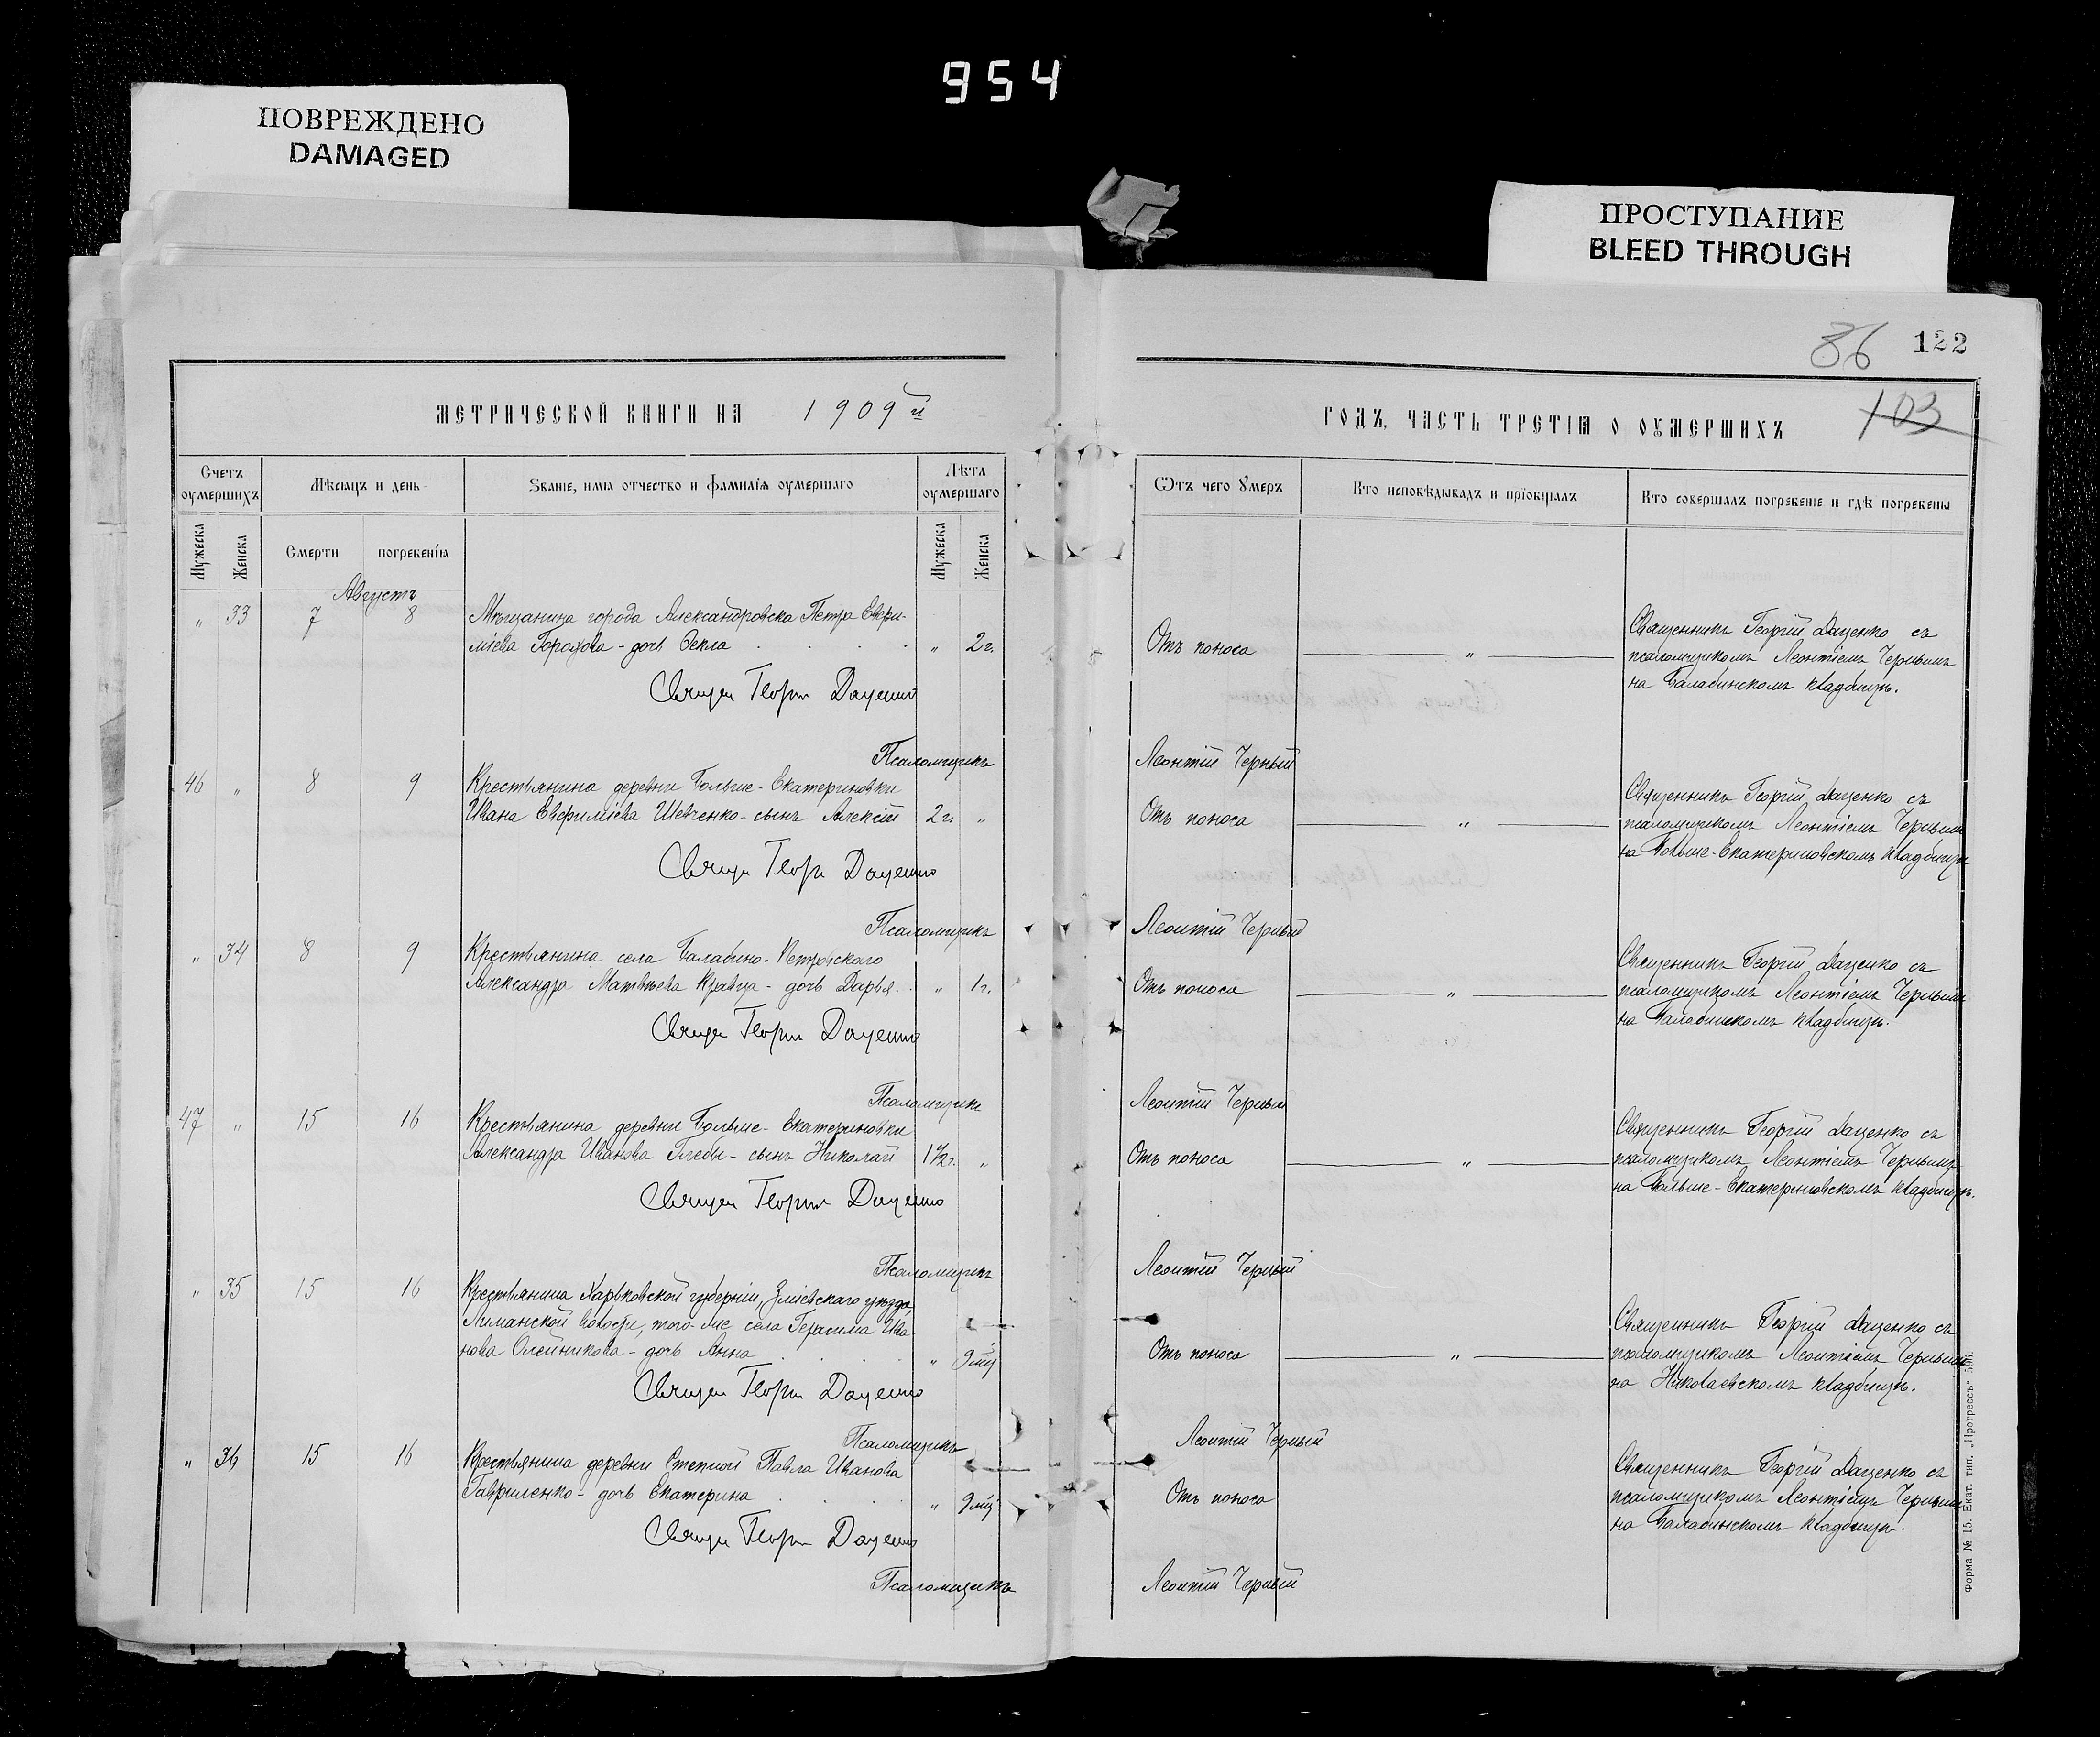 954
ПОВРЕЖДЕНО
DAMAGED
ПРОСТУПАНИЕ
BLEED THROUGH
86 122
103
МЕТРИЧЕСКОЙ КНИГИ НА 1909й
ГОДЪ, ЧАСТЬ ТРЕТІЯ О ОУМЕРШИХЪ
Счетъ оумершихъ
Мѣсяцъ и день
Званіе, имя отчество и фамилія оумершаго
Лѣта оумершаго
Ѿтъ чего Умеръ
Кто исповѣдывалъ и пріобщалъ
Кто совершалъ погребеніе и гдѣ погребены
Мужеска
Женска
Смерти
погребенія
Мужеска
Женска
Августъ
" 33 7 8 Мѣщанина города Александровска Петра Евфи-
міева Горохова - дочь Ѳекла " 2 г.
Отъ поноса
"
Священникъ Георгій Даценко съ
псаломщикомъ Леонтіемъ Чернымъ
на Балабинскомъ кладбищѣ.
Священ Георгій Даценко
Псаломщикъ Леонтій Черный
46 " 8 9 Крестьянина деревни Больше-Екатериновки
Ивана Евфиміева Шевченко - сынъ Алексій 2 г. "
Отъ поноса
"
Священникъ Георгій Даценко съ
псаломщикомъ Леонтіемъ Чернымъ
на Больше-Екатериновскомъ кладбищѣ
Священ Георгій Даценко
Псаломщикъ Леонтій Черный
" 34 8 9 Крестьянина села Балабино-Петровскаго
Александра Матвѣева Кравца - дочь Дарья. " 1 г.
Отъ поноса
"
Священникъ Георгій Даценко съ
псаломщикомъ Леонтіемъ Чернымъ
на Балабинскомъ кладбищѣ.
Священ Георгій Даценко
Псаломщикъ Леонтій Черный
47 " 15 16 Крестьянина деревни Больше-Екатериновки
Александра Иванова Глебы - сынъ Николай 1½ г. "
Отъ поноса
"
Священникъ Георгій Даценко съ
псаломщикомъ Леонтіемъ Чернымъ
на Больше-Екатериновскомъ кладбищѣ.
Священ Георгій Даценко
Псаломщикъ Леонтій Черный
" 35 15 16 Крестьянина Харьковской губерніи, Зміевскаго уѣзда,
Лиманской волости, того-же села Герасима Ива
нова Олейникова - дочь Анна " 9 мц
Отъ поноса
"
Священникъ Георгій Даценко съ
псаломщикомъ Леонтіемъ Чернымъ
на Николаевскомъ кладбищѣ.
Священ Георгій Даценко
Псаломщикъ Леонтій Черный
" 36 15 16 Крестьянина деревни Степной Павла Иванова
Гавриленко - дочь Екатерина " 9 мц
Отъ поноса
Священникъ Георгій Даценко съ
псаломщикомъ Леонтіемъ Чернымъ
на Балабинскомъ кладбищѣ.
Священ Георгій Даценко
Псаломщикъ Леонтій Черный
Форма № 15. Екат. тип. „Прогрессъ“